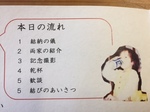 本日の流れ
1 結納の儀
2 両家の紹介
3 記念撮影
4 乾杯
5 歓談
6 結びのあいさつ